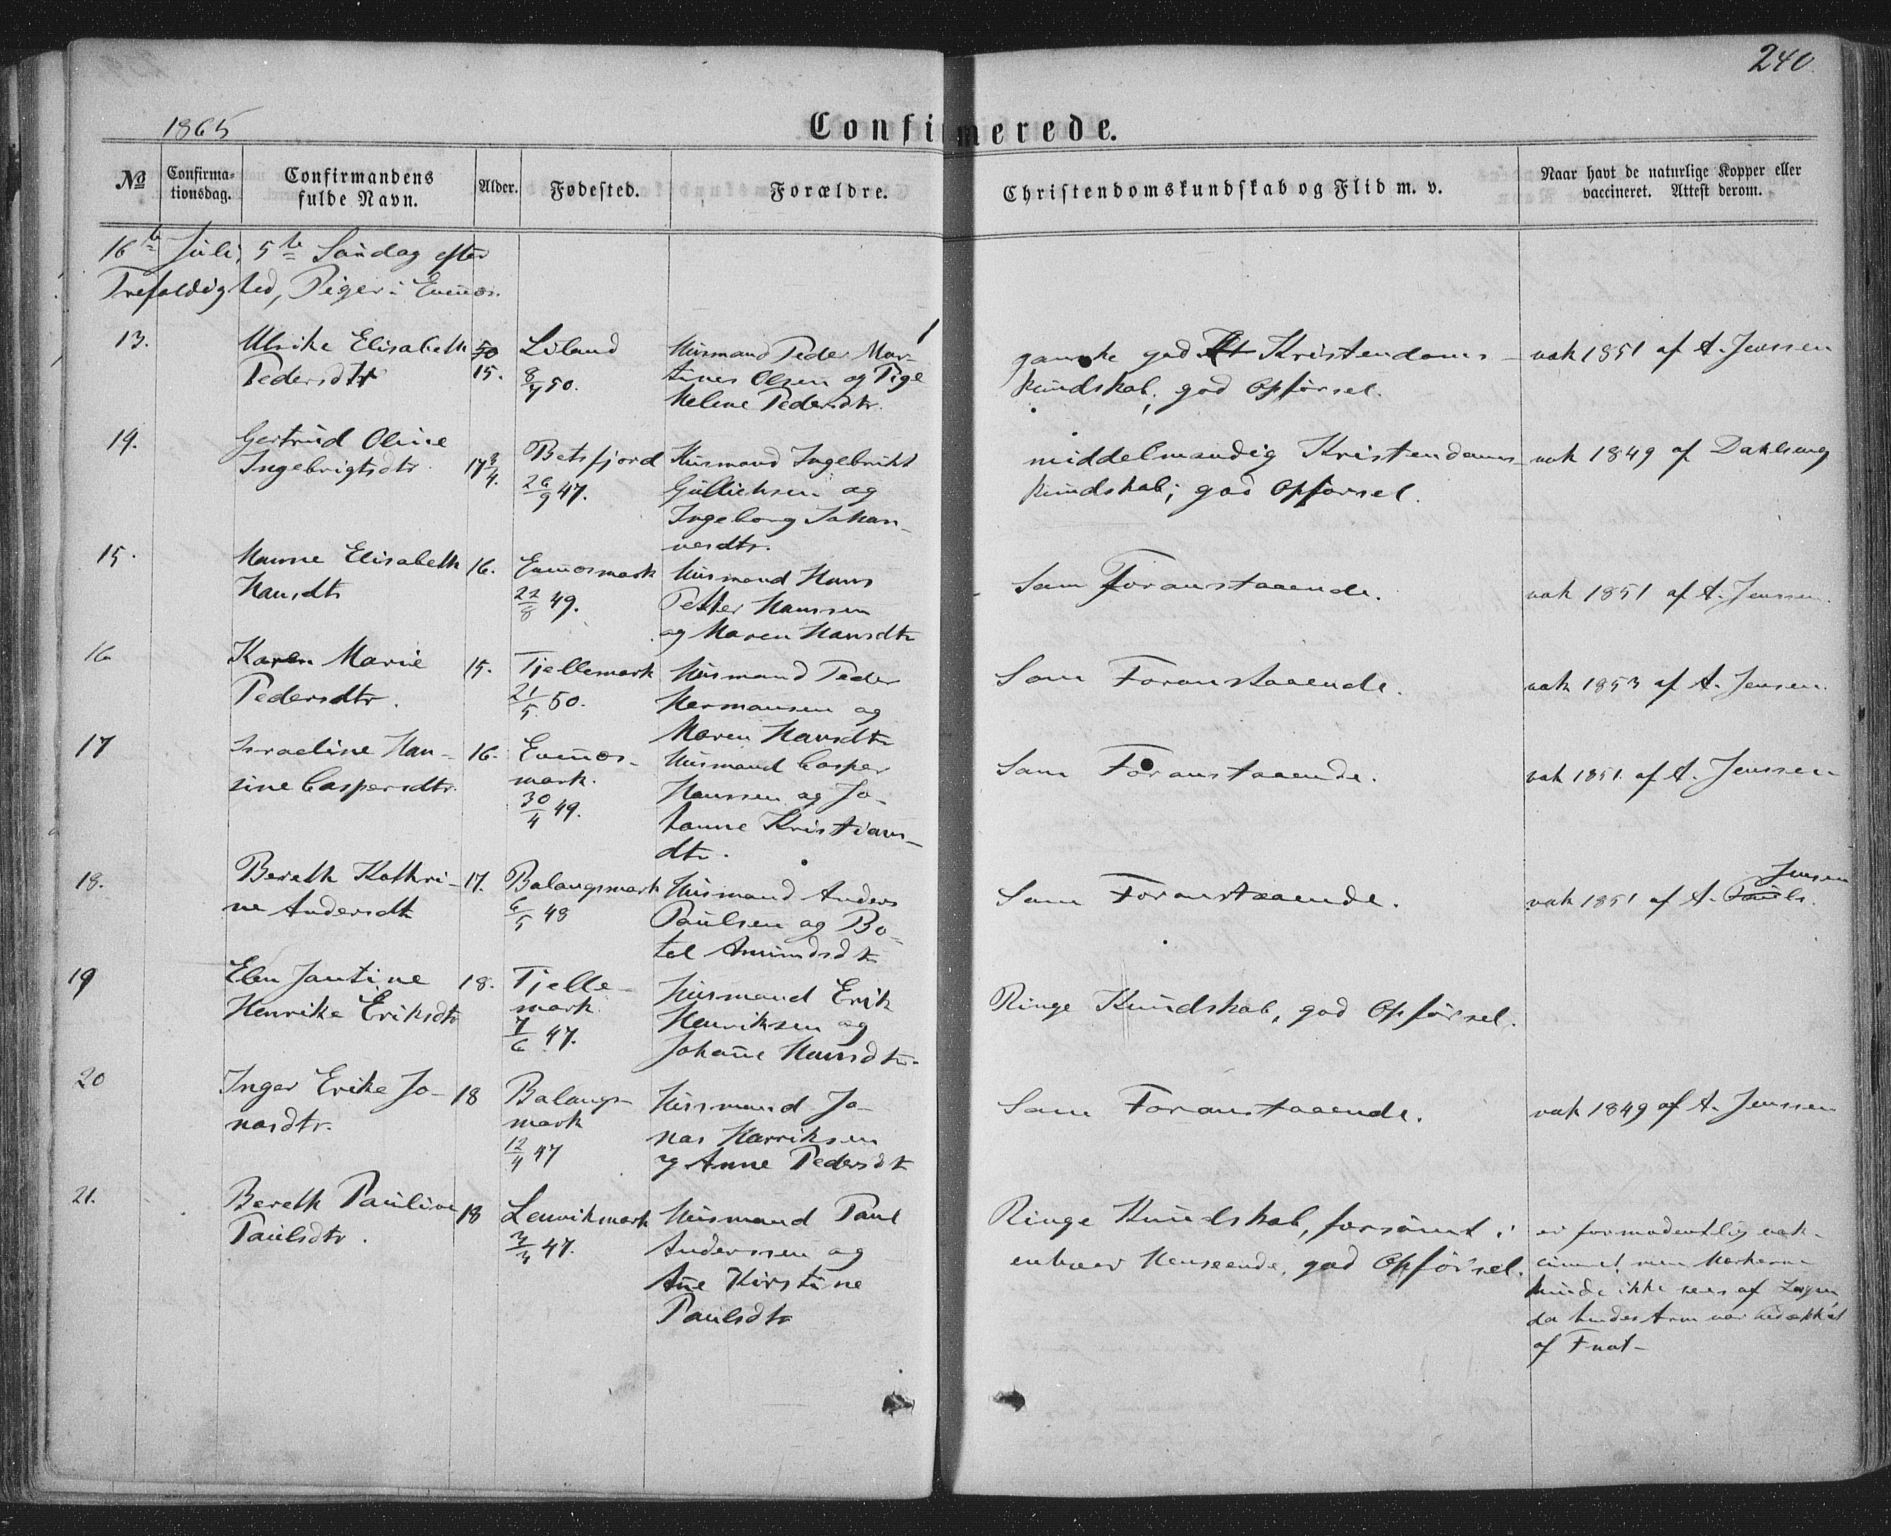 240
1865
Confirmerede.
№
Confirmationsdag.
Confirmandens fulde Navn.
Alder.
Fødested.
Forældre.
Christendomskundskab og Flid m. v.
Naar havt de naturlige Kopper eller vaccineret. Attest derom.
16de Juli, 5te Søndag efter
Trefoldighed, Piger i Evenæs.
13.
Ulrike Elisabeth
Pedersdtr
15.
Liland
8/7 50.
Husmand Peder Mar-
tines Olsen og Pige
Helene Pedersdtr.
ganske god Kristendoms-
kundskab, god Opførsel.
vak 1851 af A. Jenssen
14.
Gertrud Oline
Ingebrigtsdtr.
17 3/4.
Botsfjord
26/9 47.
Husmand Ingebrikt
Gullichsen og
Ingeborg Johan-
nesdtr.
middelmaadig Kristendoms-
kundskab; god Opførsel.
vak 1849 af
15.
Hanne Elisabeth
Hansdtr
16.
Evenæsmark
22/8 49.
Husmand Hans
Petter Hanssen
og Maren Hansdtr
Som Foranstaaende.
vak 1851 af A. Jenssen.
16
Karen Marie
Pedersdtr.
15.
Tjellemark
21/5. 50.
Husmand Peder
Hermansen og
Maren Hansdtr
Som Foranstaaende.
vak 1853 af A. Jensen.
17
Israeline Han-
sine Caspersdtr.
16.
Evenæs-
mark.
30/4 49.
Husmand Casper
Hanssen og Jo-
hanne Kristians-
dtr.
Som Foranstaaende.
vak 1851. af A. Jenssen
18.
Bereth Kathri-
ne Andersdtr
17.
Balangsmark
6/5 48
Husmand Anders
Paulsen og Bo-
tel Amundsdtr
Som Foranstaaende.
Jensen
vak 1851 af A. Pauls.
19
Elen Jantine
Henrike Eriksdtr
18.
Tjelle-
mark.
7/6 47.
Husmand Erik
Henriksen og
Johanne Hansdtr.
Ringe Kundskab, god Opførsel.
20
Inger Erike Jo-
nasdtr.
18
Balangs-
mark
12/4 47
Husmand Jo-
nas Henriksen
og Anne Pedersdtr
Som Foranstaaende.
vak 1849 af A. Jenssen
21.
Bereth Pauline
Paulsdtr.
18
Lenvikmark
3/4 47.
Husmand Paul
Anderssen og
Ane Kirstine
Paulsdtr
Ringe Kundskab, forsømt i
enhver Henseende, god Opførsel.
er formodentlig vak-
cineret men Mærkerne
kunde ikke sees af Lægen
da hendes Arm var bedækket
af Fnat-